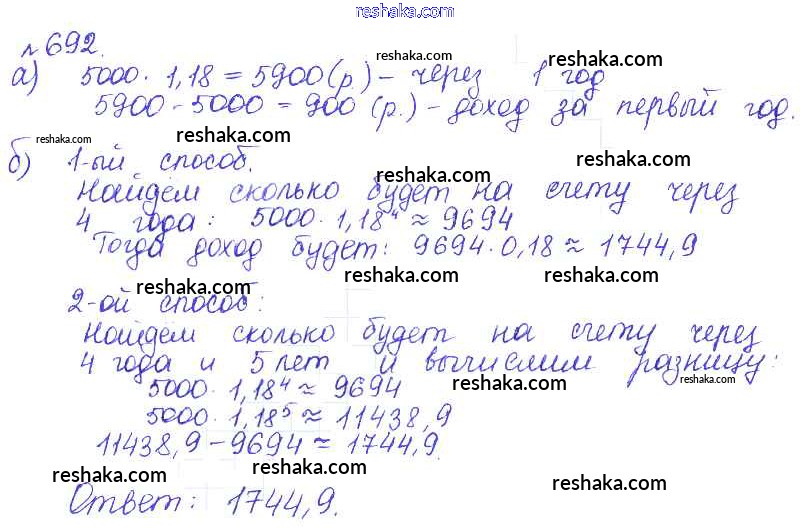 reshaka.com
№692.
reshaka.com reshaka.com
а) 5000 · 1,18 = 5900 (р.) - через 1 год
5900 - 5000 = 900 (р.) - доход за первый год.
reshaka.com reshaka.com reshaka.com
б) 1-ый способ.
reshaka.com
Найдём сколько будет на счету через
4 года: 5000 · 1,18⁴ ≈ 9694
reshaka.com
Тогда доход будет: 9694 · 0,18 ≈ 1744,9
reshaka.com reshaka.com reshaka.com
2-ой способ:
Найдём сколько будет на счету через
4 года и 5 лет и вычислим разницу:
reshaka.com reshaka.com
5000 · 1,18⁴ ≈ 9694
5000 · 1,18⁵ ≈ 11438,9
11438,9 - 9694 ≈ 1744,9.
reshaka.com reshaka.com reshaka.com
Ответ: 1744,9.